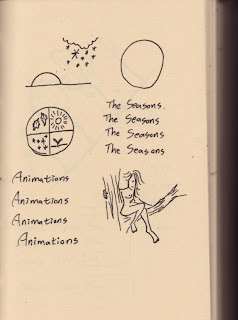 The Seasons.
The Seasons
The Seasons
The Seasons
Animations
Animations
Animations
Animations